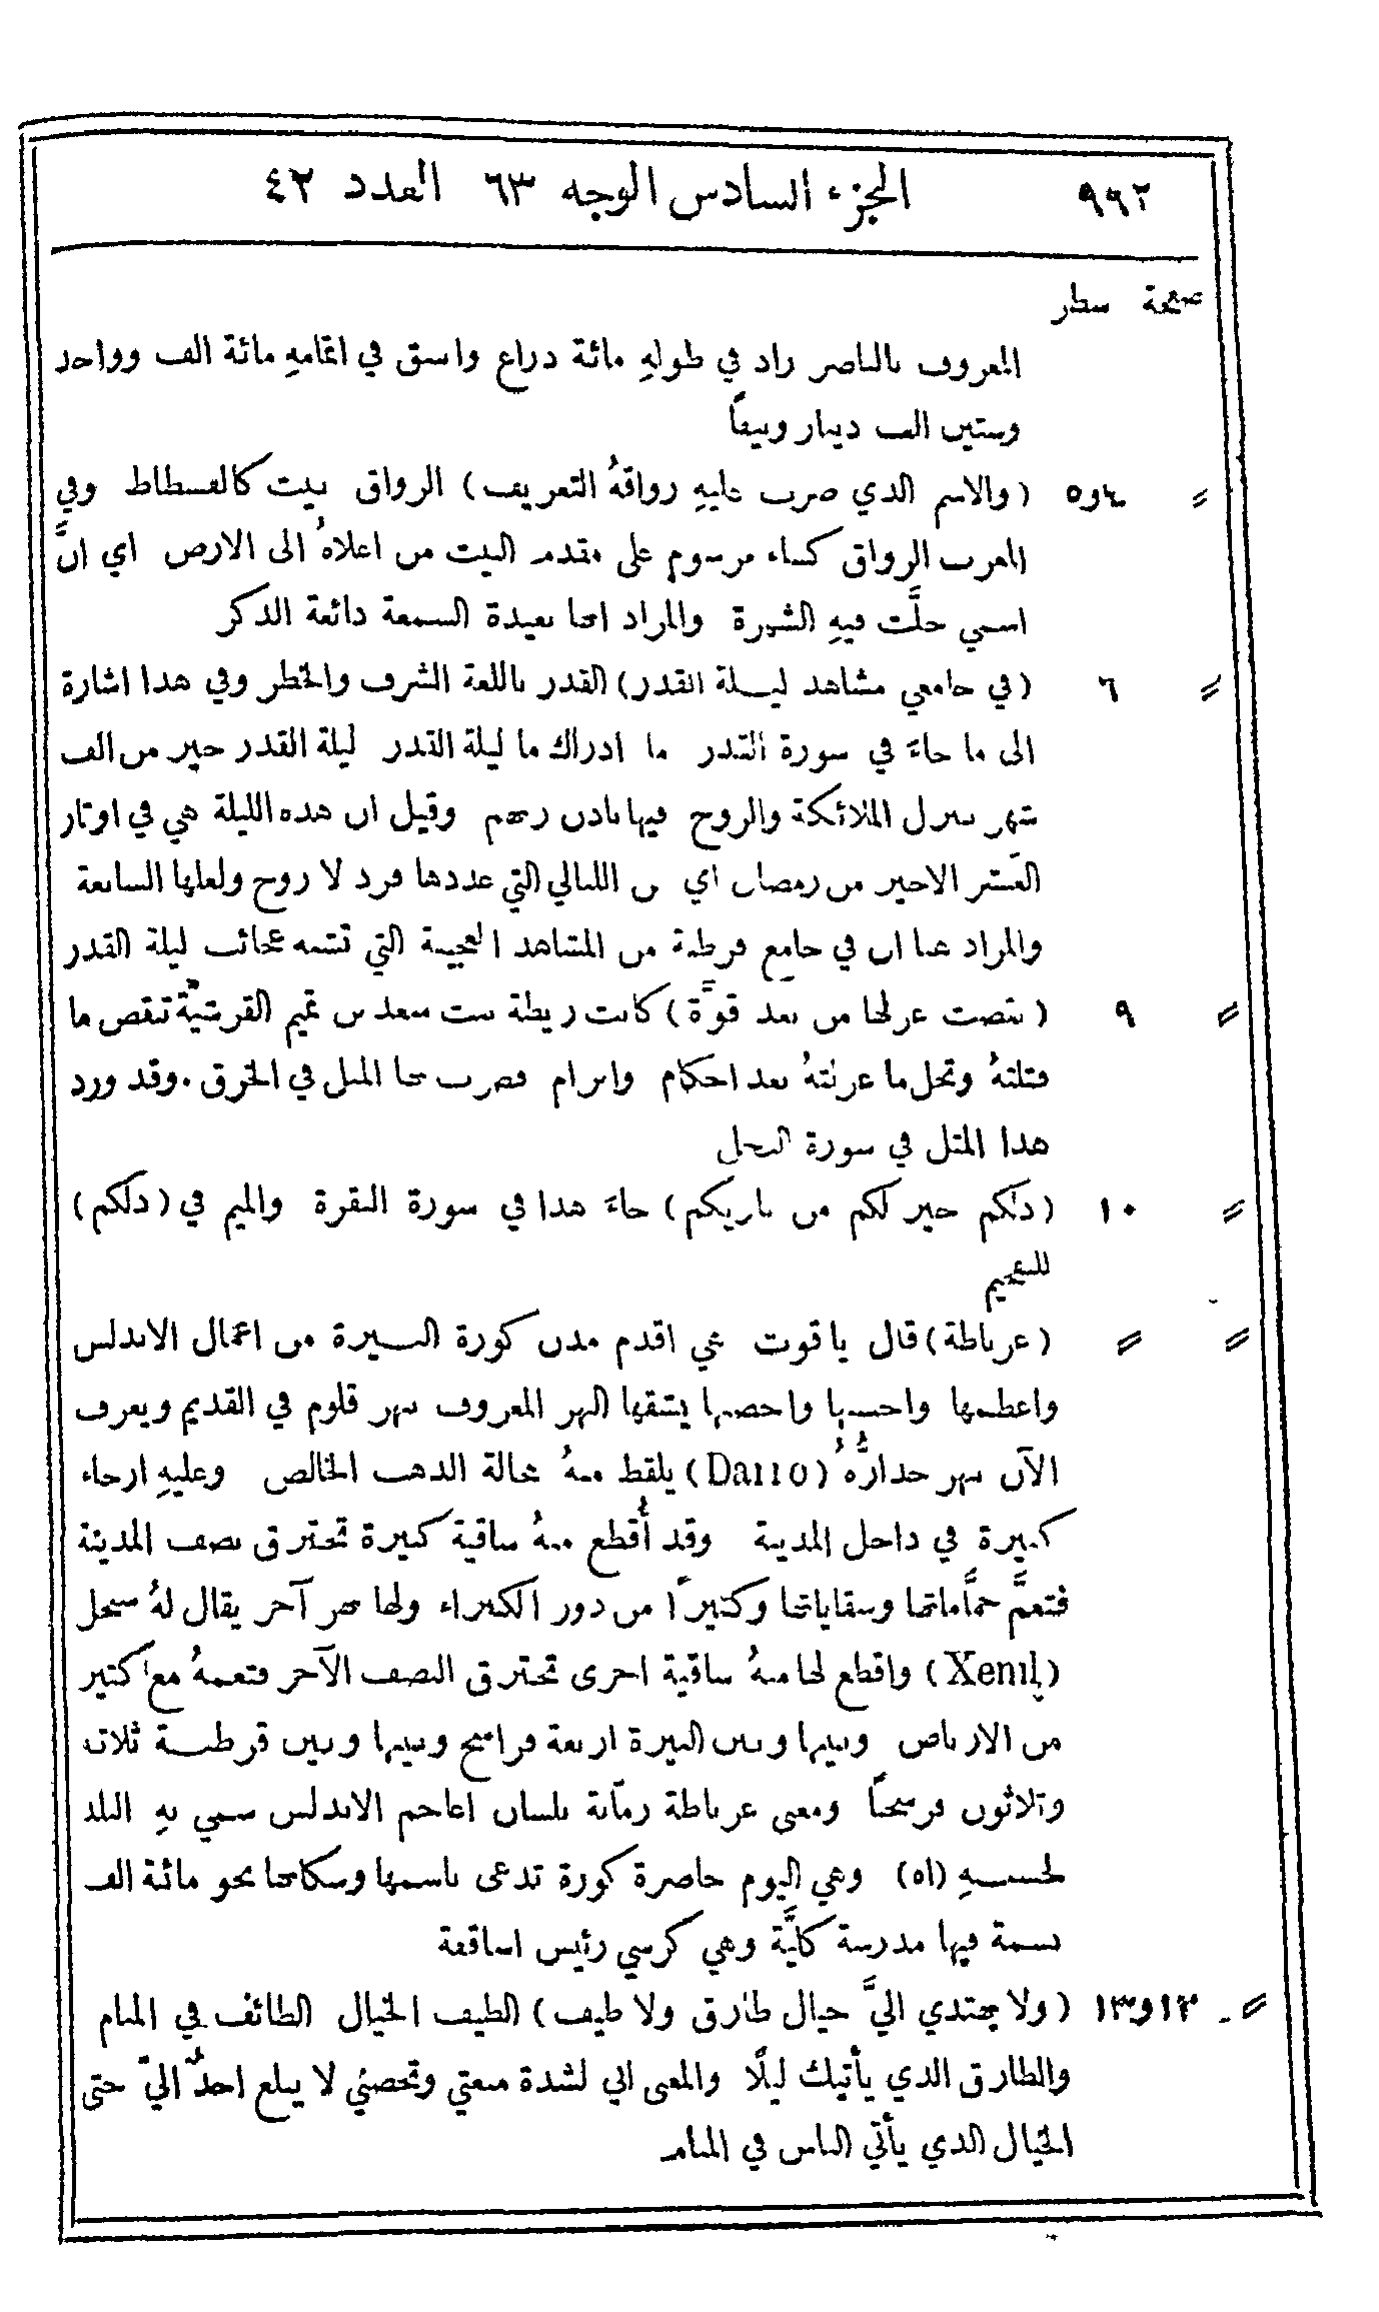 ٩٦٢ الجزء السادس الوجه ٦٣ العدد ٤٢
صفحة سطر
المعروف بالناصر زاد في طولهِ مائة ذراع وانفق في اتمامهِ مائة الف وواحد
وستين الف دينار ونيفًا
〃 ٤و٥ (والاسم الذي ضرب عليهِ رواقهُ التعريف) الرواق بيت كالفسطاط وفي
المغرب الرواق كساء مرسوم على مقدم البيت من اعلاهُ الى الارض اي انَّ
اسمي حلَّت فيهِ الشهرة والمراد انها بعيدة السمعة ذائعة الذكر
〃 ٦ (في جامعي مشاهد ليلة القدر) القدر باللغة الشرف والخطر وفي هذا اشارة
الى ما جاءَ في سورة القدر ما ادراك ما ليلة القدر ليلة القدر خير من الف
شهر تنزل الملائكة والروح فيها باذن ربهم وقيل ان هذه الليلة هي في اوتار
العشر الاخير من رمضان اي من الليالي التي عددها فرد لا زوج ولعلها السابعة
والمراد هنا ان في جامع قرطبة من المشاهد العجيبة التي تشبه عجائب ليلة القدر
〃 ٩ (نقضت غزلها من بعد قوَّة) كانت ريطة بنت سعد بن تميم القرشيَّة تنقض ما
فتلتهُ وتحل ما غزلتهُ بعد احكام وابرام فضرب بها المثل في الخرق. وقد ورد
هذا المثل في سورة النحل
〃 ١٠ (ذلكم خير لكم من باريكم) جاءَ هذا في سورة البقرة والميم في (ذلكم)
للتفخيم
〃 〃 (غرناطة) قال ياقوت هي اقدم مدن كورة البيرة من اعمال الاندلس
واعظمها واحسنها واحصنها يشقها النهر المعروف بنهر قلوم في القديم ويعرف
الآن بنهر حدارُّهُ (Darro) يلقط منهُ سحالة الذهب الخالص وعليهِ ارحاء
كثيرة في داخل المدينة وقد أُقطع منهُ ساقية كبيرة تخترق نصف المدينة
فتعمَّ حمَّاماتها وسقاياتها وكثيرًا من دور الكبراء ولها نهر آخر يقال لهُ سنجل
(Xenil) واقطع لها منهُ ساقية اخرى تخترق النصف الآخر فتعمهُ مع كثير
من الارباض وبينها وبين البيرة اربعة فراسخ وبينها وبين قرطبة ثلاثة
وثلاثون فرسخًا ومعنى غرناطة رمَّانة بلسان اعاجم الاندلس سمي بهِ البلد
لحسنهِ (اه) وهي اليوم حاضرة كورة تدعى باسمها وسكانها نحو مائة الف
نسمة فيها مدرسة كليَّة وهي كرسي رئيس اساقفة
〃 ١٢و١٣ (ولا يهتدي اليَّ خيال طارق ولا طيف) الطيف الخيال الطائف في المنام
والطارق الذي يأتيك ليلًا والمعنى اني لشدة منعتي وتحصني لا يبلغ احدٌ اليَّ حتى
الخيال الذي يأتي الناس في المنام